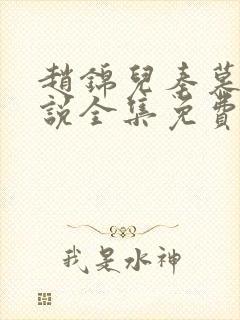 趙錦兒秦慕
說全集免費
我是水神